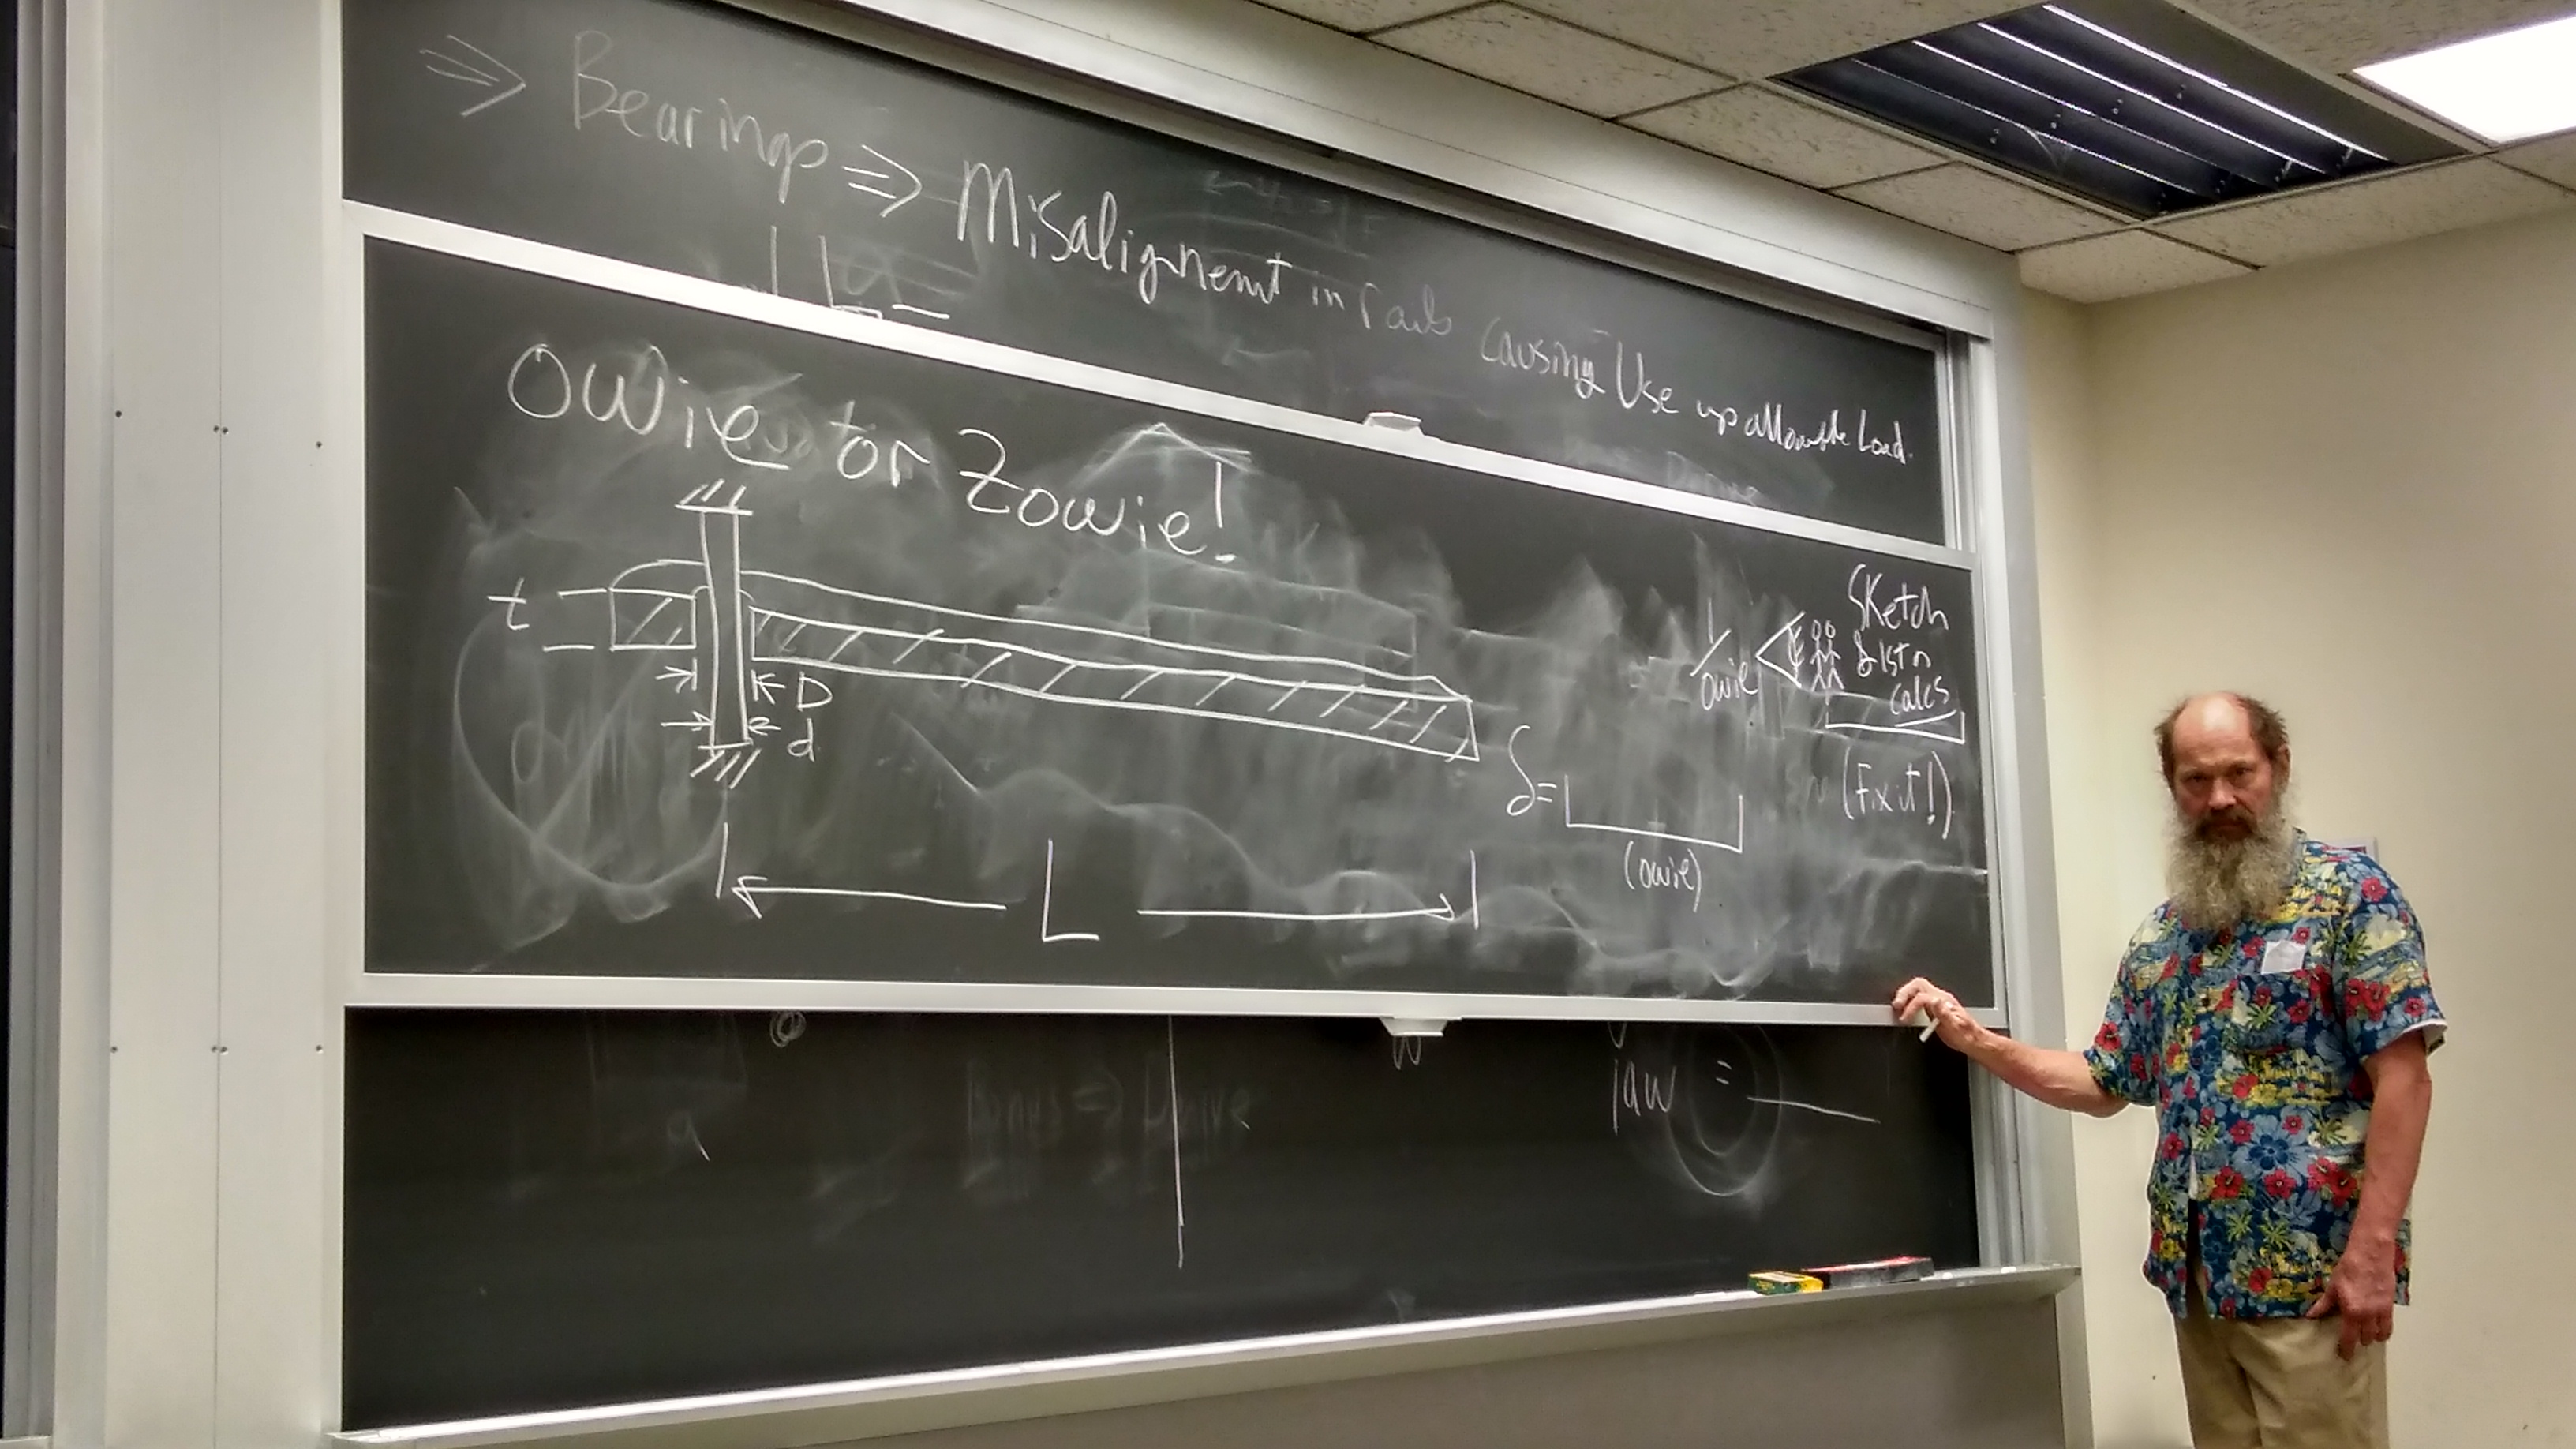 ⇒ Bearings ⇒ Misalignemt in rails causing Use up allowable Load.
Owie or Zowie!
t
D
d
L
δ=
(owie)
1/owie
Sketch
& 1st n
calcs
(Fix it!)
jaw =